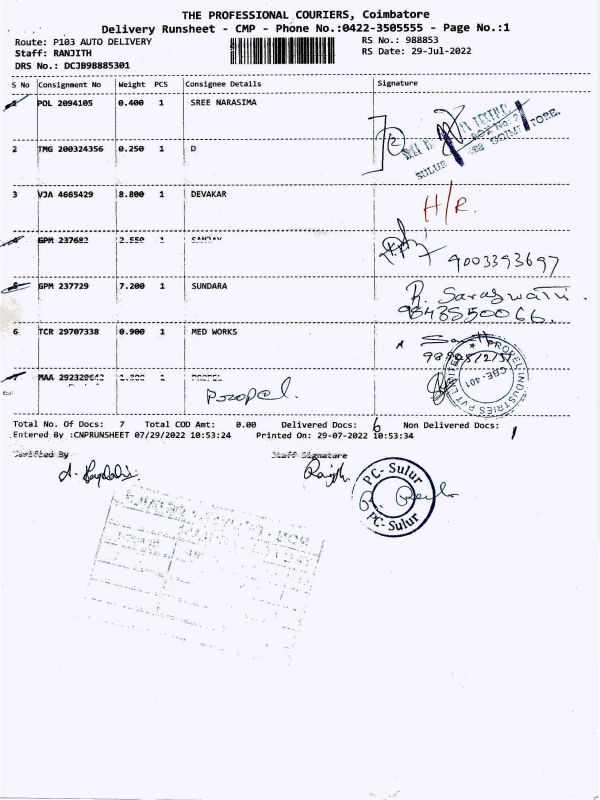 THE PROFESSIONAL COURIERS, Coimbatore
Delivery Runsheet - CMP - Phone No.:0422-3505555 - Page No.:1
Route: P103 AUTO DELIVERY RS No.: 988853
Staff: RANJITH RS Date: 29-Jul-2022
DRS No.: DCJB98885301
S No Consignment No Weight PCS Consignee Details Signature
1 POL 2094105 0.400 1 SREE NARASIMA
2 TMG 200324356 0.250 1 D
SULUR
3 VJA 4665429 8.800 1 DEVAKAR H/R.
4 GPM 237682 2.550 1 SANJAY
9003393697
5 GPM 237729 7.200 1 SUNDARA R. Saraswathi.
9843550066.
6 TCR 29707338 0.900 1 MED WORKS
PROPEL INDUSTRIES PVT LIMITED
CBE-401
7 MAA 1 PROPEL
Propel.
Total No. Of Docs: 7 Total COD Amt: 0.00 Delivered Docs: 6 Non Delivered Docs: 1
Entered By :CNPRUNSHEET 07/29/2022 10:53:24 Printed On: 29-07-2022 10:53:34
Verified By Staff Signature
PC- Sulur
PC- Sulur